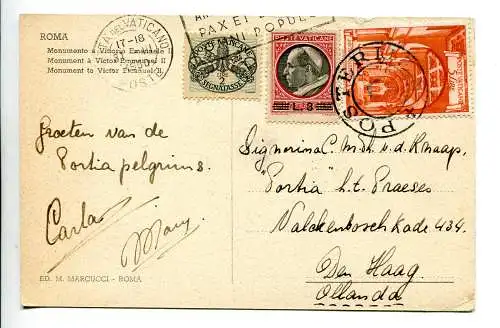 ROMA
Monumento a Vittorio Emanuele II
Monument à Victor Emmanuel II
Monument to Victor Emanuel II
CITTÀ DEL VATICANO
17-18
POSTE
PAX ET
POPULI
POSTE VATICANE
SEGNATASSE
POSTE VATICANE
L. 3
POSTERI
Groeten van de
Portia pelgrims.
Carla
Mary.
Signorina C. M. v. d. Knaap,
"Portia" h.t. Praeses
Valckenboschkade 434.
Den Haag
Ollanda
ED. M. MARCUCCI - ROMA